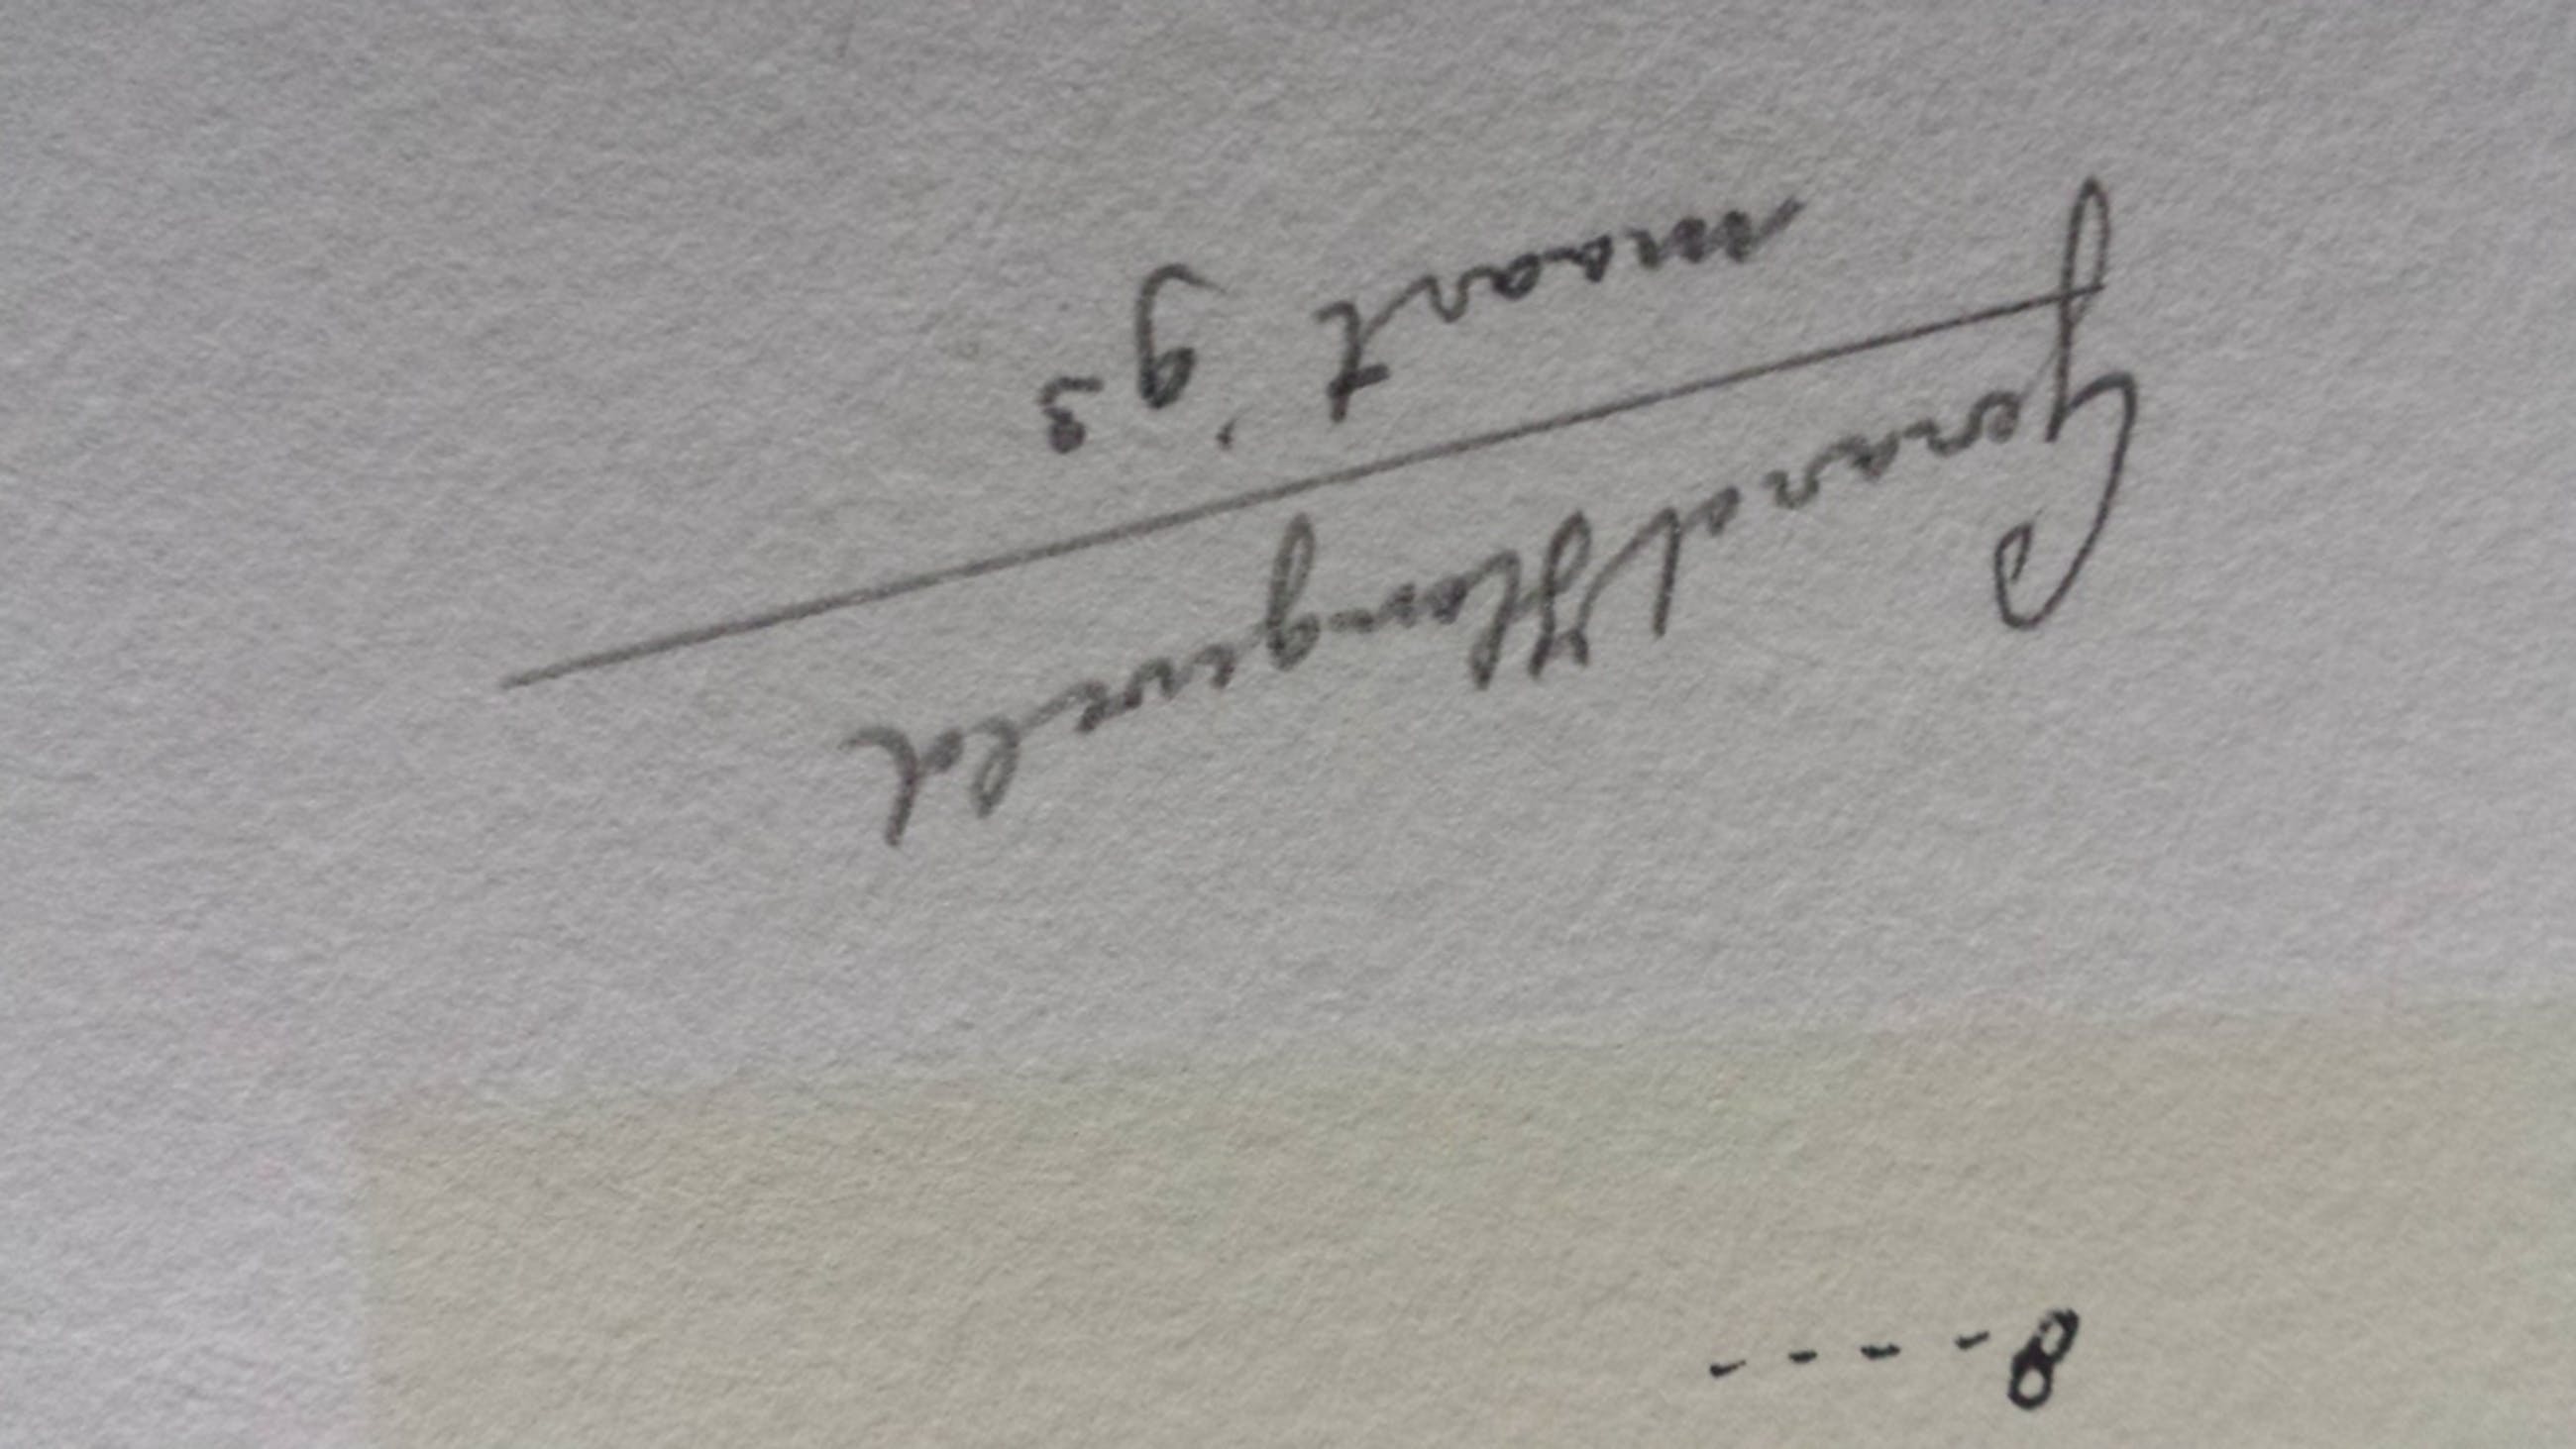 8 - - - -
Gerard
maart '93